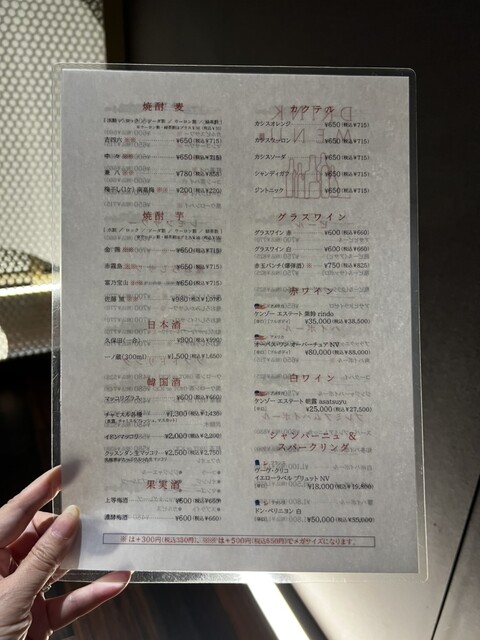 焼酎 麦
吉四六 ¥650(税込¥715)
¥650(税込¥715)
兼八 ¥780(税込¥858)
梅干し(1ケ)・ ¥200(税込¥220)
焼酎 芋
¥650(税込¥715)
赤霧島 ¥650(税込¥715)
富乃宝山 ¥650(税込¥715)
佐藤 黒 ¥980(税込¥1,078)
日本酒
久保田 ¥900(税込¥990)
一ノ蔵(300ml) ¥1,500(税込¥1,650)
韓国酒
マッコリグラス ¥600(税込¥660)
チャミスル各種 ¥1,300(税込¥1,430)
イドンマッコリ ¥2,000(税込¥2,200)
クッスンダン生マッコリ ¥2,500(税込¥2,750)
果実酒
上等梅酒 ¥600(税込¥660)
濃醇梅酒 ¥600(税込¥660)
カクテル
カシスオレンジ ¥650(税込¥715)
カシスウーロン ¥650(税込¥715)
カシスソーダ ¥650(税込¥715)
シャンディガフ ¥650(税込¥715)
ジントニック ¥650(税込¥715)
グラスワイン
グラスワイン 赤 ¥600(税込¥660)
グラスワイン 白 ¥600(税込¥660)
赤玉パンチ(爆弾酒) ¥750(税込¥825)
赤ワイン
ケンゾー エステート 紫鈴 rindo
¥35,000(税込¥38,500)
オーパス・ワン オーバーチュア NV
¥80,000(税込¥88,000)
白ワイン
ケンゾー エステート 朝露 asatsuyu
¥25,000(税込¥27,500)
シャンパーニュ &
スパークリング
ヴーヴ・クリコ
イエローラベル ブリュット NV
¥18,000(税込¥19,800)
ドン・ペリニヨン 白
¥50,000(税込¥55,000)
※ は+300円(税込330円)、※※ は+500円(税込550円)でメガサイズになります。